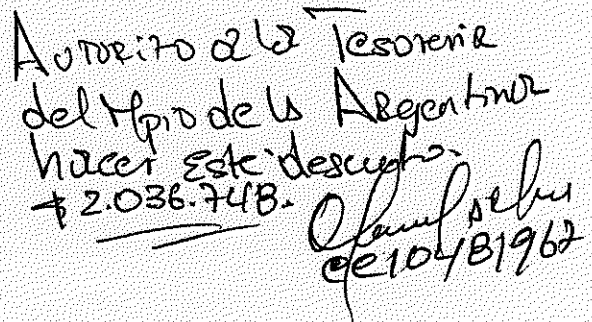 Autorizo a la Tesoreria
del Mpio de la Argentina
hacer este descuento.
$ 2.036.748.
cc10481962